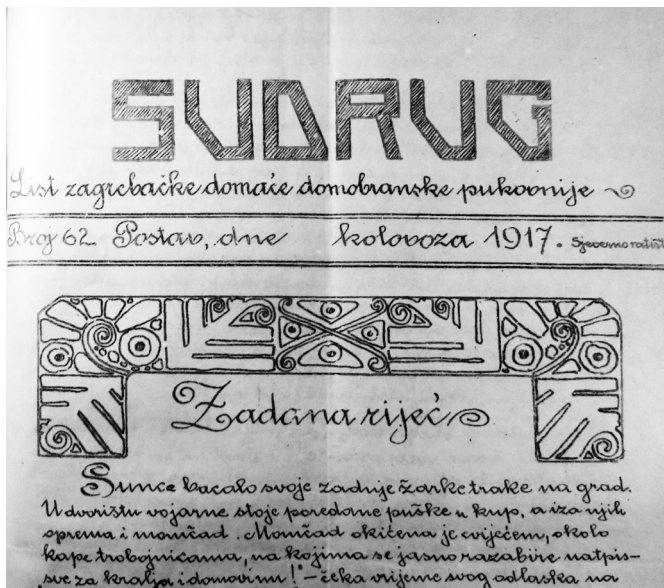 SUDRUG
List zagrebačke domaće domobranske pukovnije
Broj 62. Postav, dne kolovoza 1917. Sjeverno ratišt
Zadana riječ
Sunce bacalo svoje zadnje žarke trake na grad.
U dvorištu vojarne stoje poredane puške u kup, a iza njih
oprema i momčad. Momčad okićena je cvijećem, okolo
kape trobojnicama, na kojima se jasno razabire natpis-
sve za kralja i domovinu!"-čeka vrijeme svog odlaska na